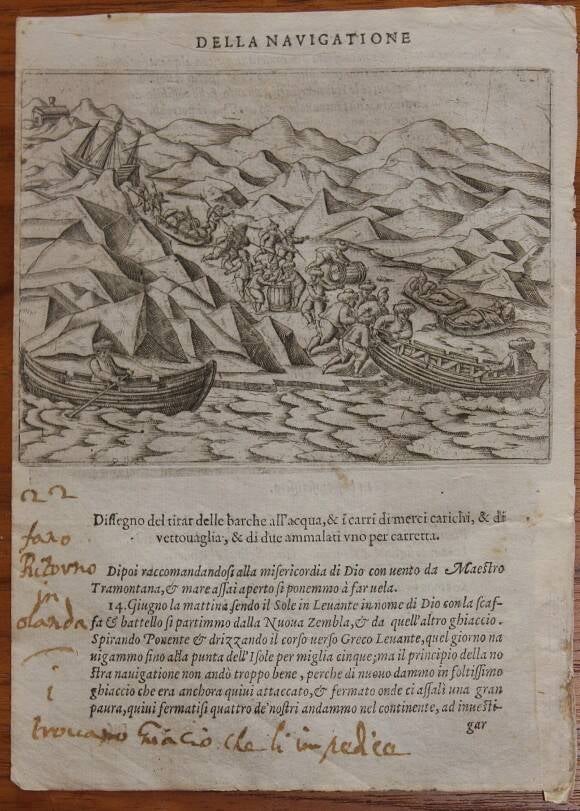 DELLA NAVIGATIONE
Dissegno del tirar delle barche all'acqua, & i carri di merci carichi, & di
vettouaglia, & di due ammalati vno per carretta.
Dipoi raccomandandosi alla misericordia di Dio con uento da Maestro
Tramontana, & mare assai aperto si ponemmo à far uela.
14. Giugno la mattina sendo il Sole in Leuante in nome di Dio con la scaf-
fa & battello si partimmo dalla Nuoua Zembla, & da quell'altro ghiaccio.
Spirando Ponente & drizzando il corso uerso Greco Leuante, quel giorno na
uigammo sino alla punta dell'Isole per miglia cinque; ma il principio della no
stra nauigatione non andò troppo bene, perche di nuouo dammo in foltissimo
ghiaccio che era anchora quiui attaccato, & fermato onde ci assalì una gran
paura, quiui fermatisi quattro de' nostri andammo nel continente, ad inuesti-
gar
22
fano
Ritorno
in
olanda
i
trouano Giacio che li impedica